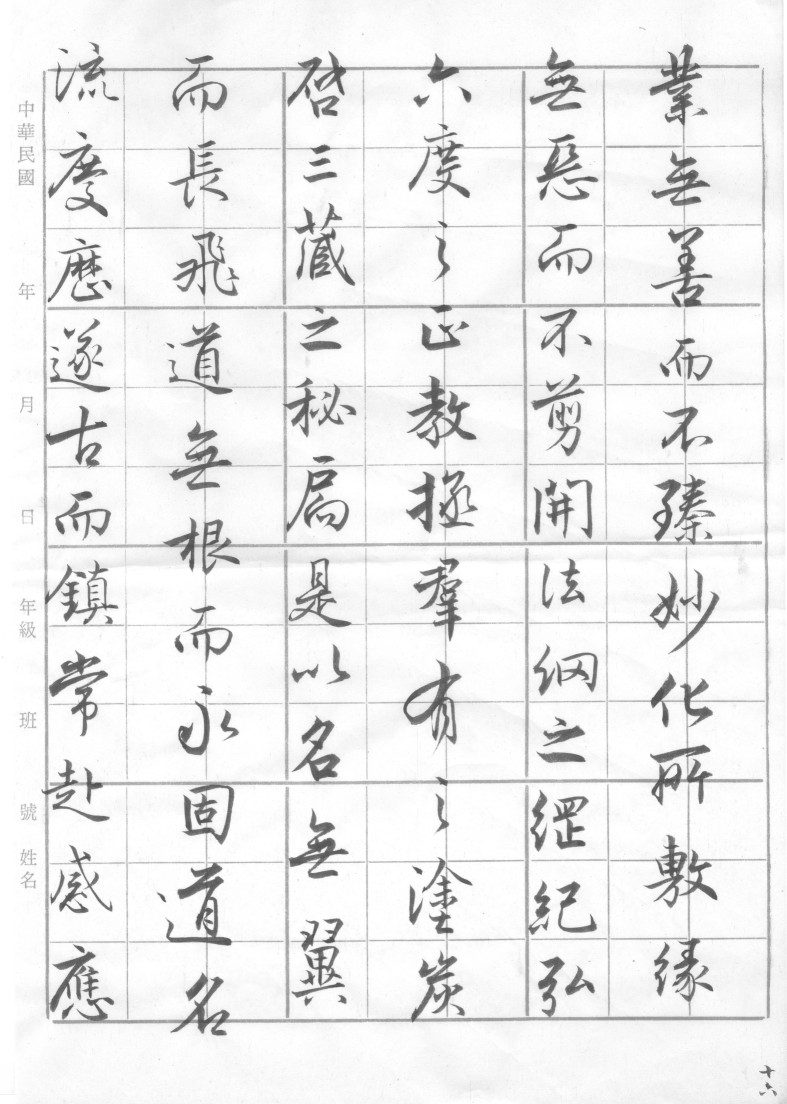 業無善而不臻妙化所敷緣
無惡而不剪開法網之綱紀弘
六度之正教拯群有之塗炭
啓三藏之秘扃是以名無翼
而長飛道無根而永固道名
流慶歷遂古而鎮常赴感應
中華民國 年 月 日 年級 班 號 姓名
十六